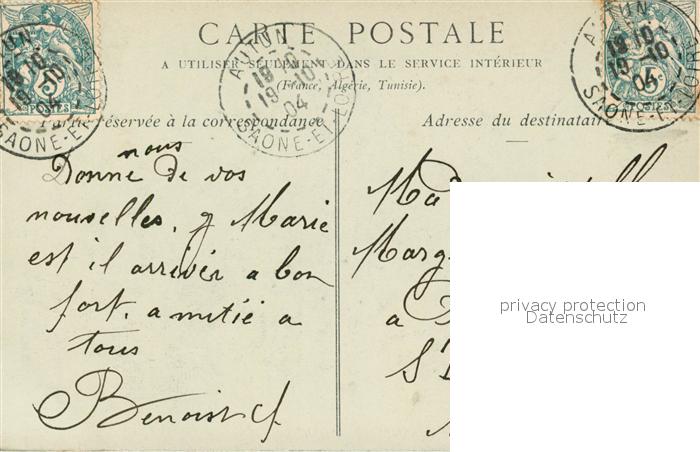 CARTE POSTALE
A UTILISER SEULEMENT DANS LE SERVICE INTÉRIEUR
(France, Algérie, Tunisie).
Partie réservée à la correspondance
Adresse du destinataire
AUTUN
19 10
19 10
04
SAONE-ET-LOIRE
5c
POSTES
nous
Donne de vos
nouvelles, Marie
est il arriver a bon
fort. amitié a
tous
Benoist
Marg
a
privacy protection
Datenschutz